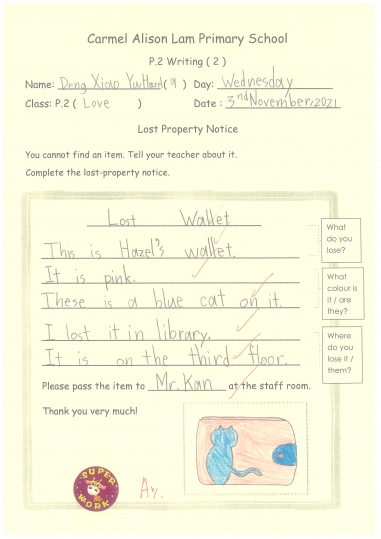 Carmel Alison Lam Primary School
P.2 Writing ( 2 )
Name: Deng Xiao Yu Hazel ( 9 ) Day: Wednesday
Class: P.2 ( Love ) Date : 3rd November, 2021
Lost Property Notice
You cannot find an item. Tell your teacher about it.
Complete the lost-property notice.
Lost Wallet
What do you lose?
This is Hazel's wallet.
It is pink.
What colour is it / are they?
These is a blue cat on it.
I lost it in library.
Where do you lose it / them?
It is on the third floor.
Please pass the item to Mr. Kan at the staff room.
Thank you very much!
SUPER WORK